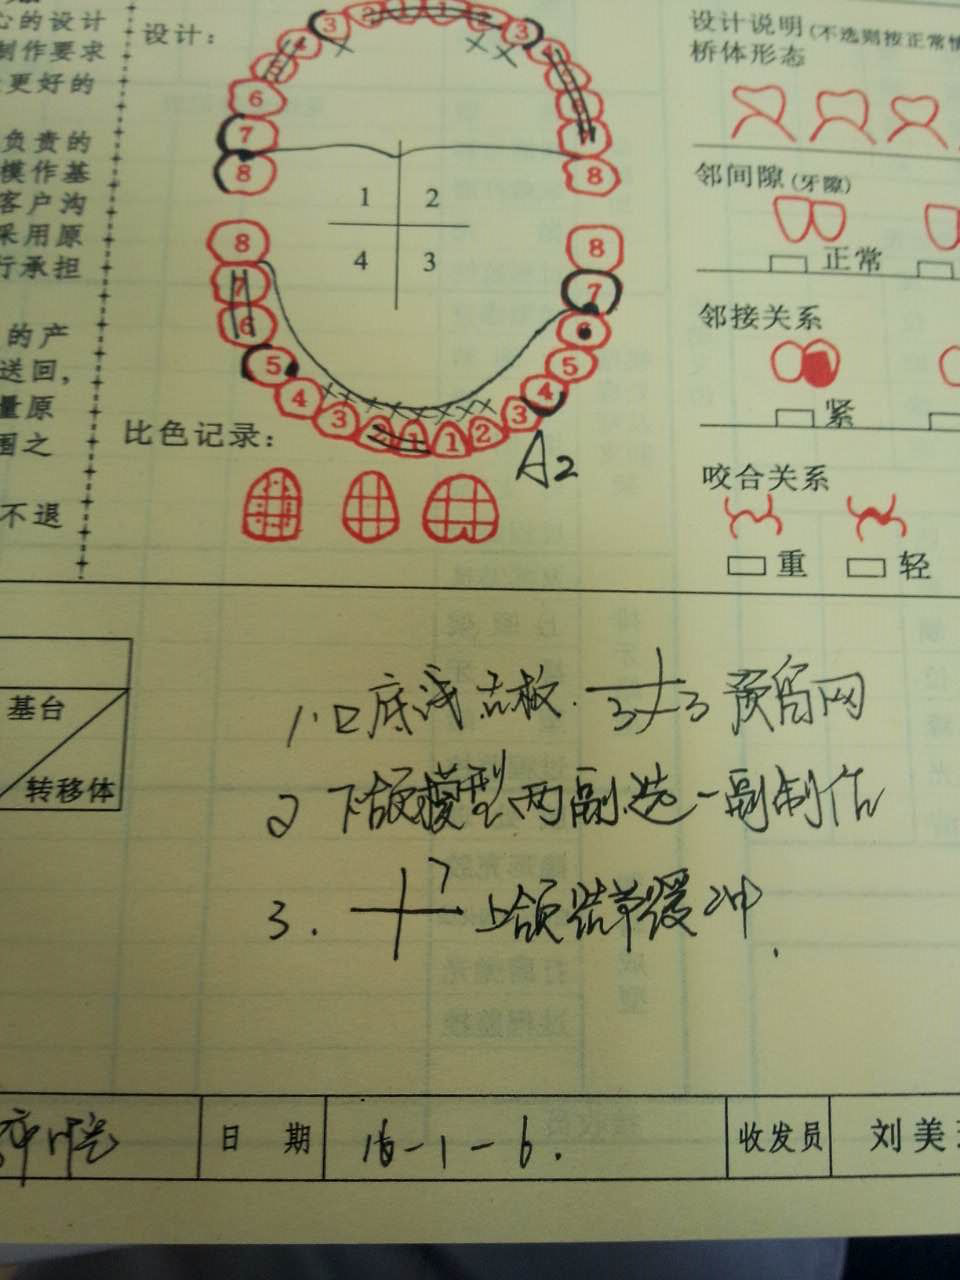 心的设计
制作要求
更好的
负责的
模作基
客户沟
采用原
行承担
的产
送回,
量原
围之
不退
设计:
3 2 1 1 2 3
6
7
8 8
1 2
4 3
8 8
7 7
6
5 5
4 4
3 2 1 1 2 3
A2
比色记录:
设计说明(不选则按正常情
桥体形态
邻间隙(牙隙)
正常
邻接关系
紧
咬合关系
重 轻
基台
转移体
1. 口底浅 舌板. 3 3 预留网
2 下颌模型两副选一副制作
3. 7 上颌结节缓冲.
日 期 16-1-6. 收发员 刘美